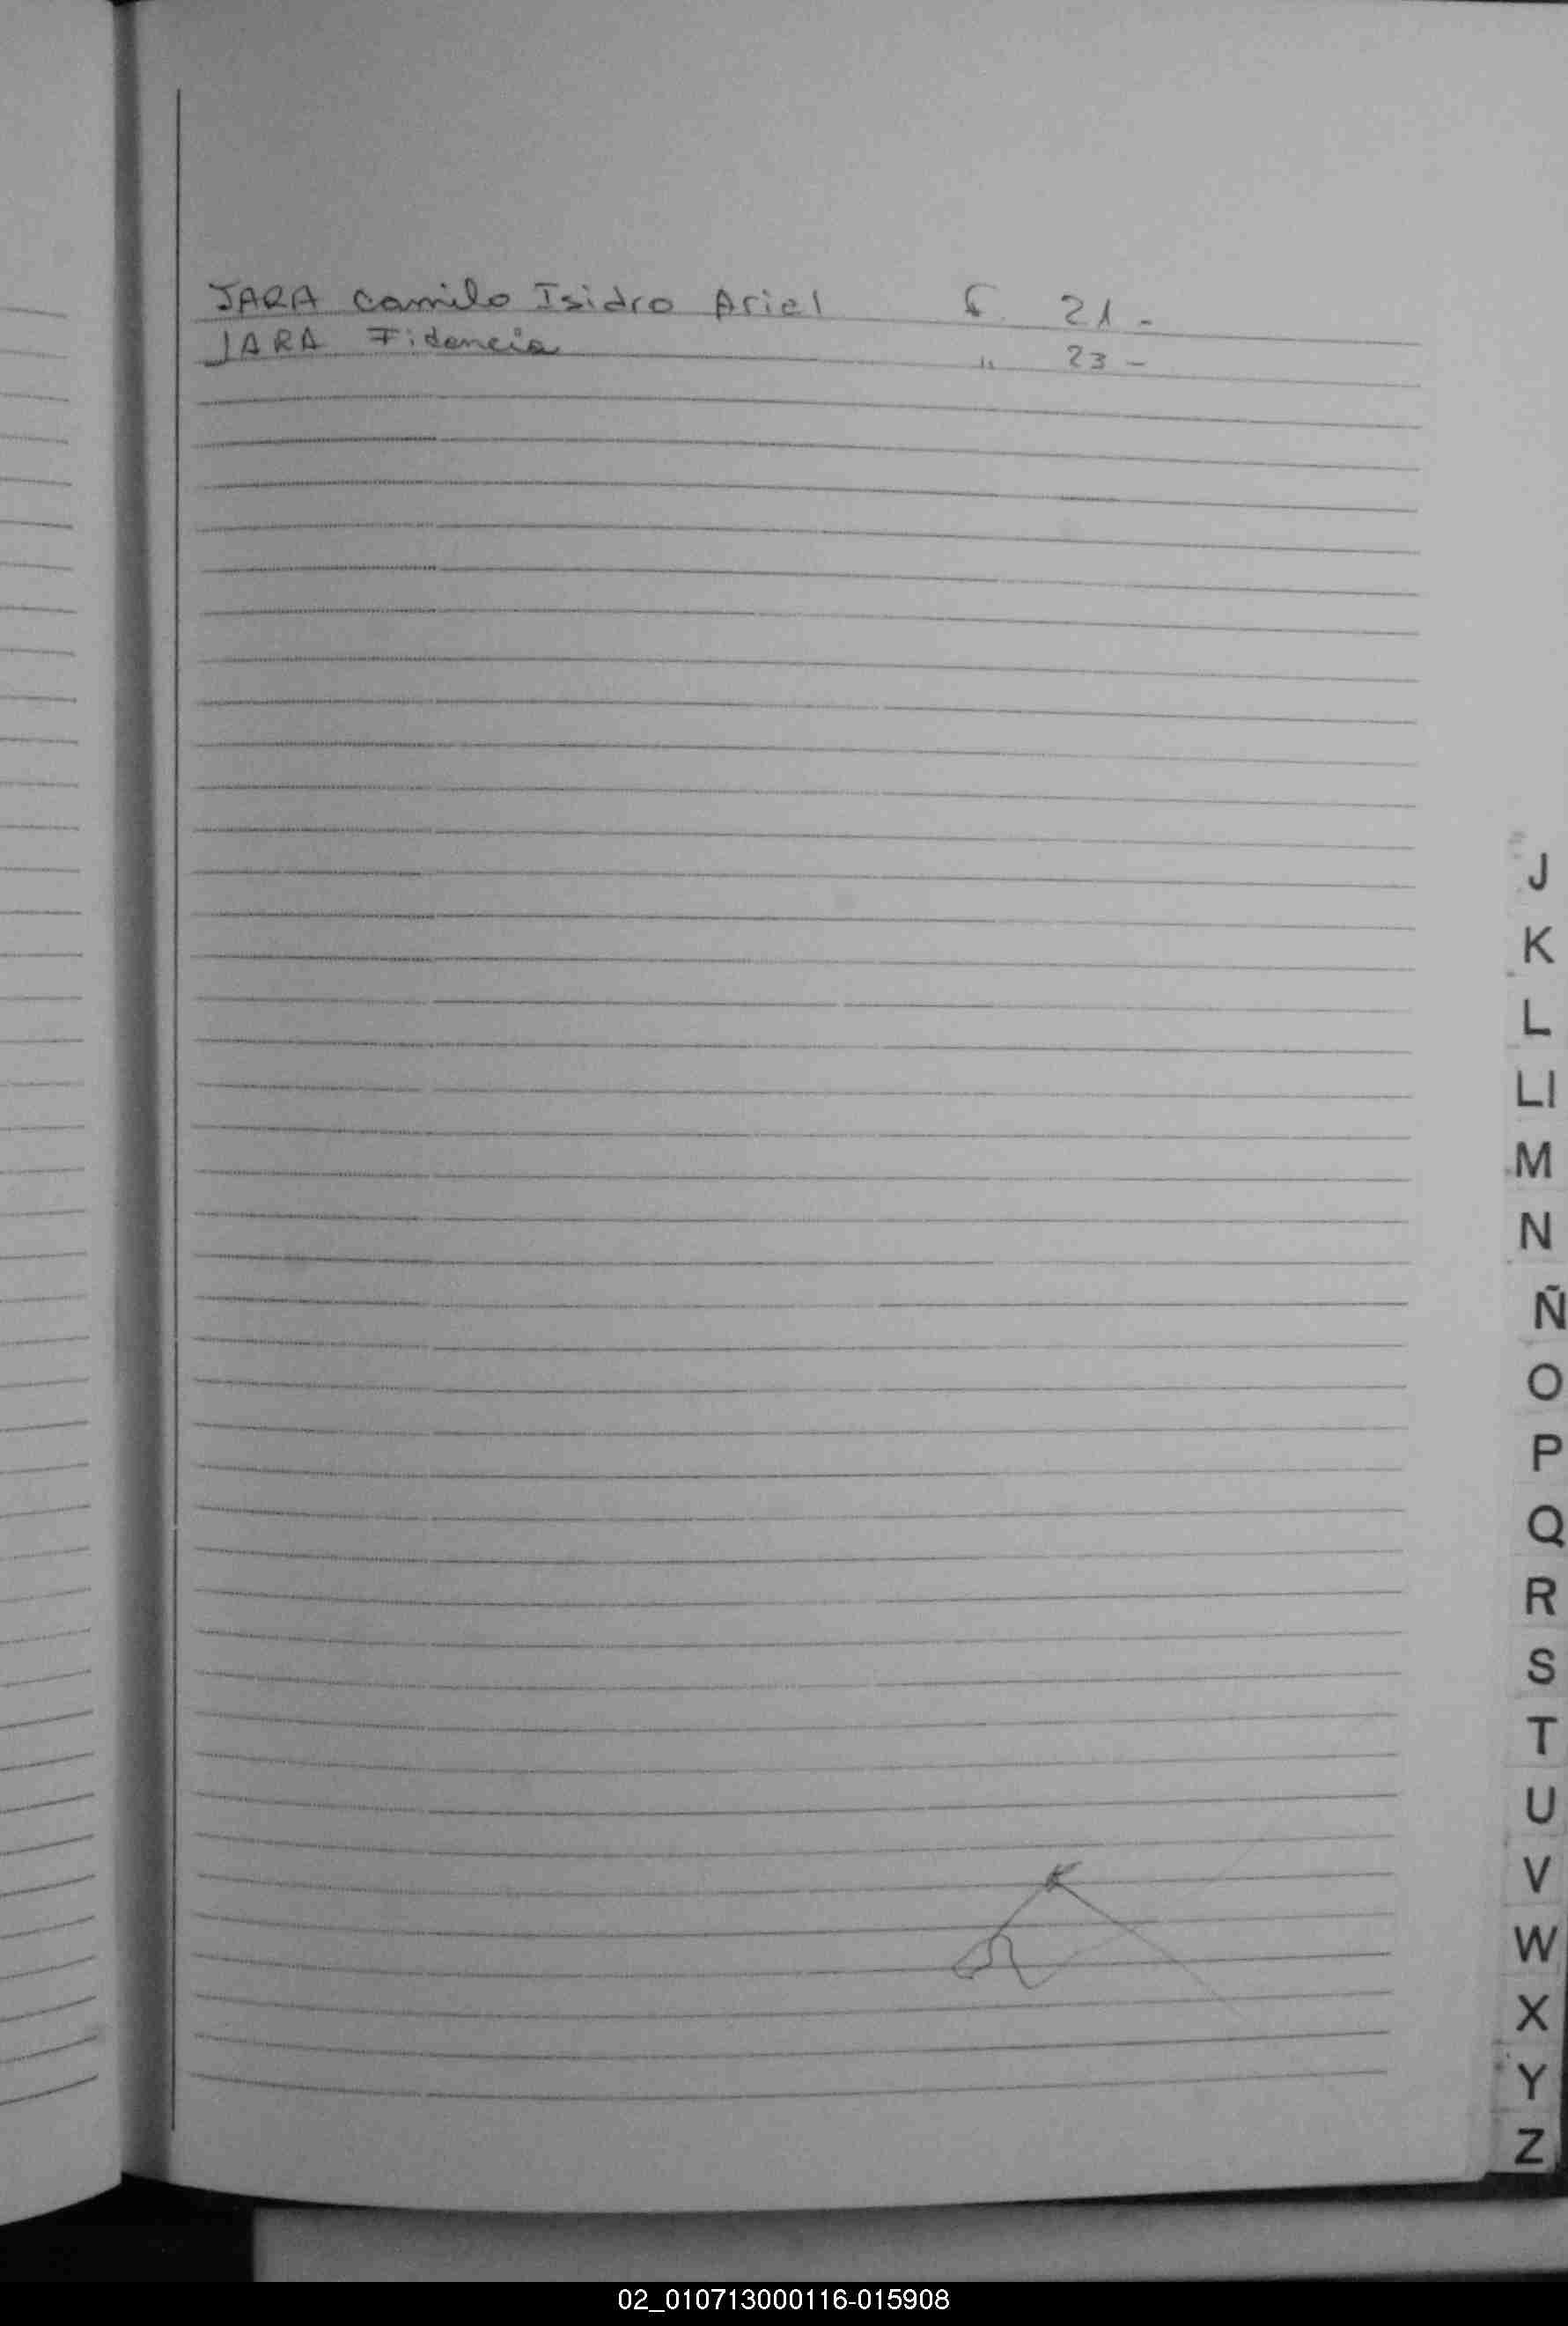 JARA Camilo Isidro Ariel 21 -
JARA Fidencia " 23 -
J
K
L
Ll
M
N
Ñ
O
P
Q
R
S
T
U
V
W
X
Y
Z
02_010713000116-015908